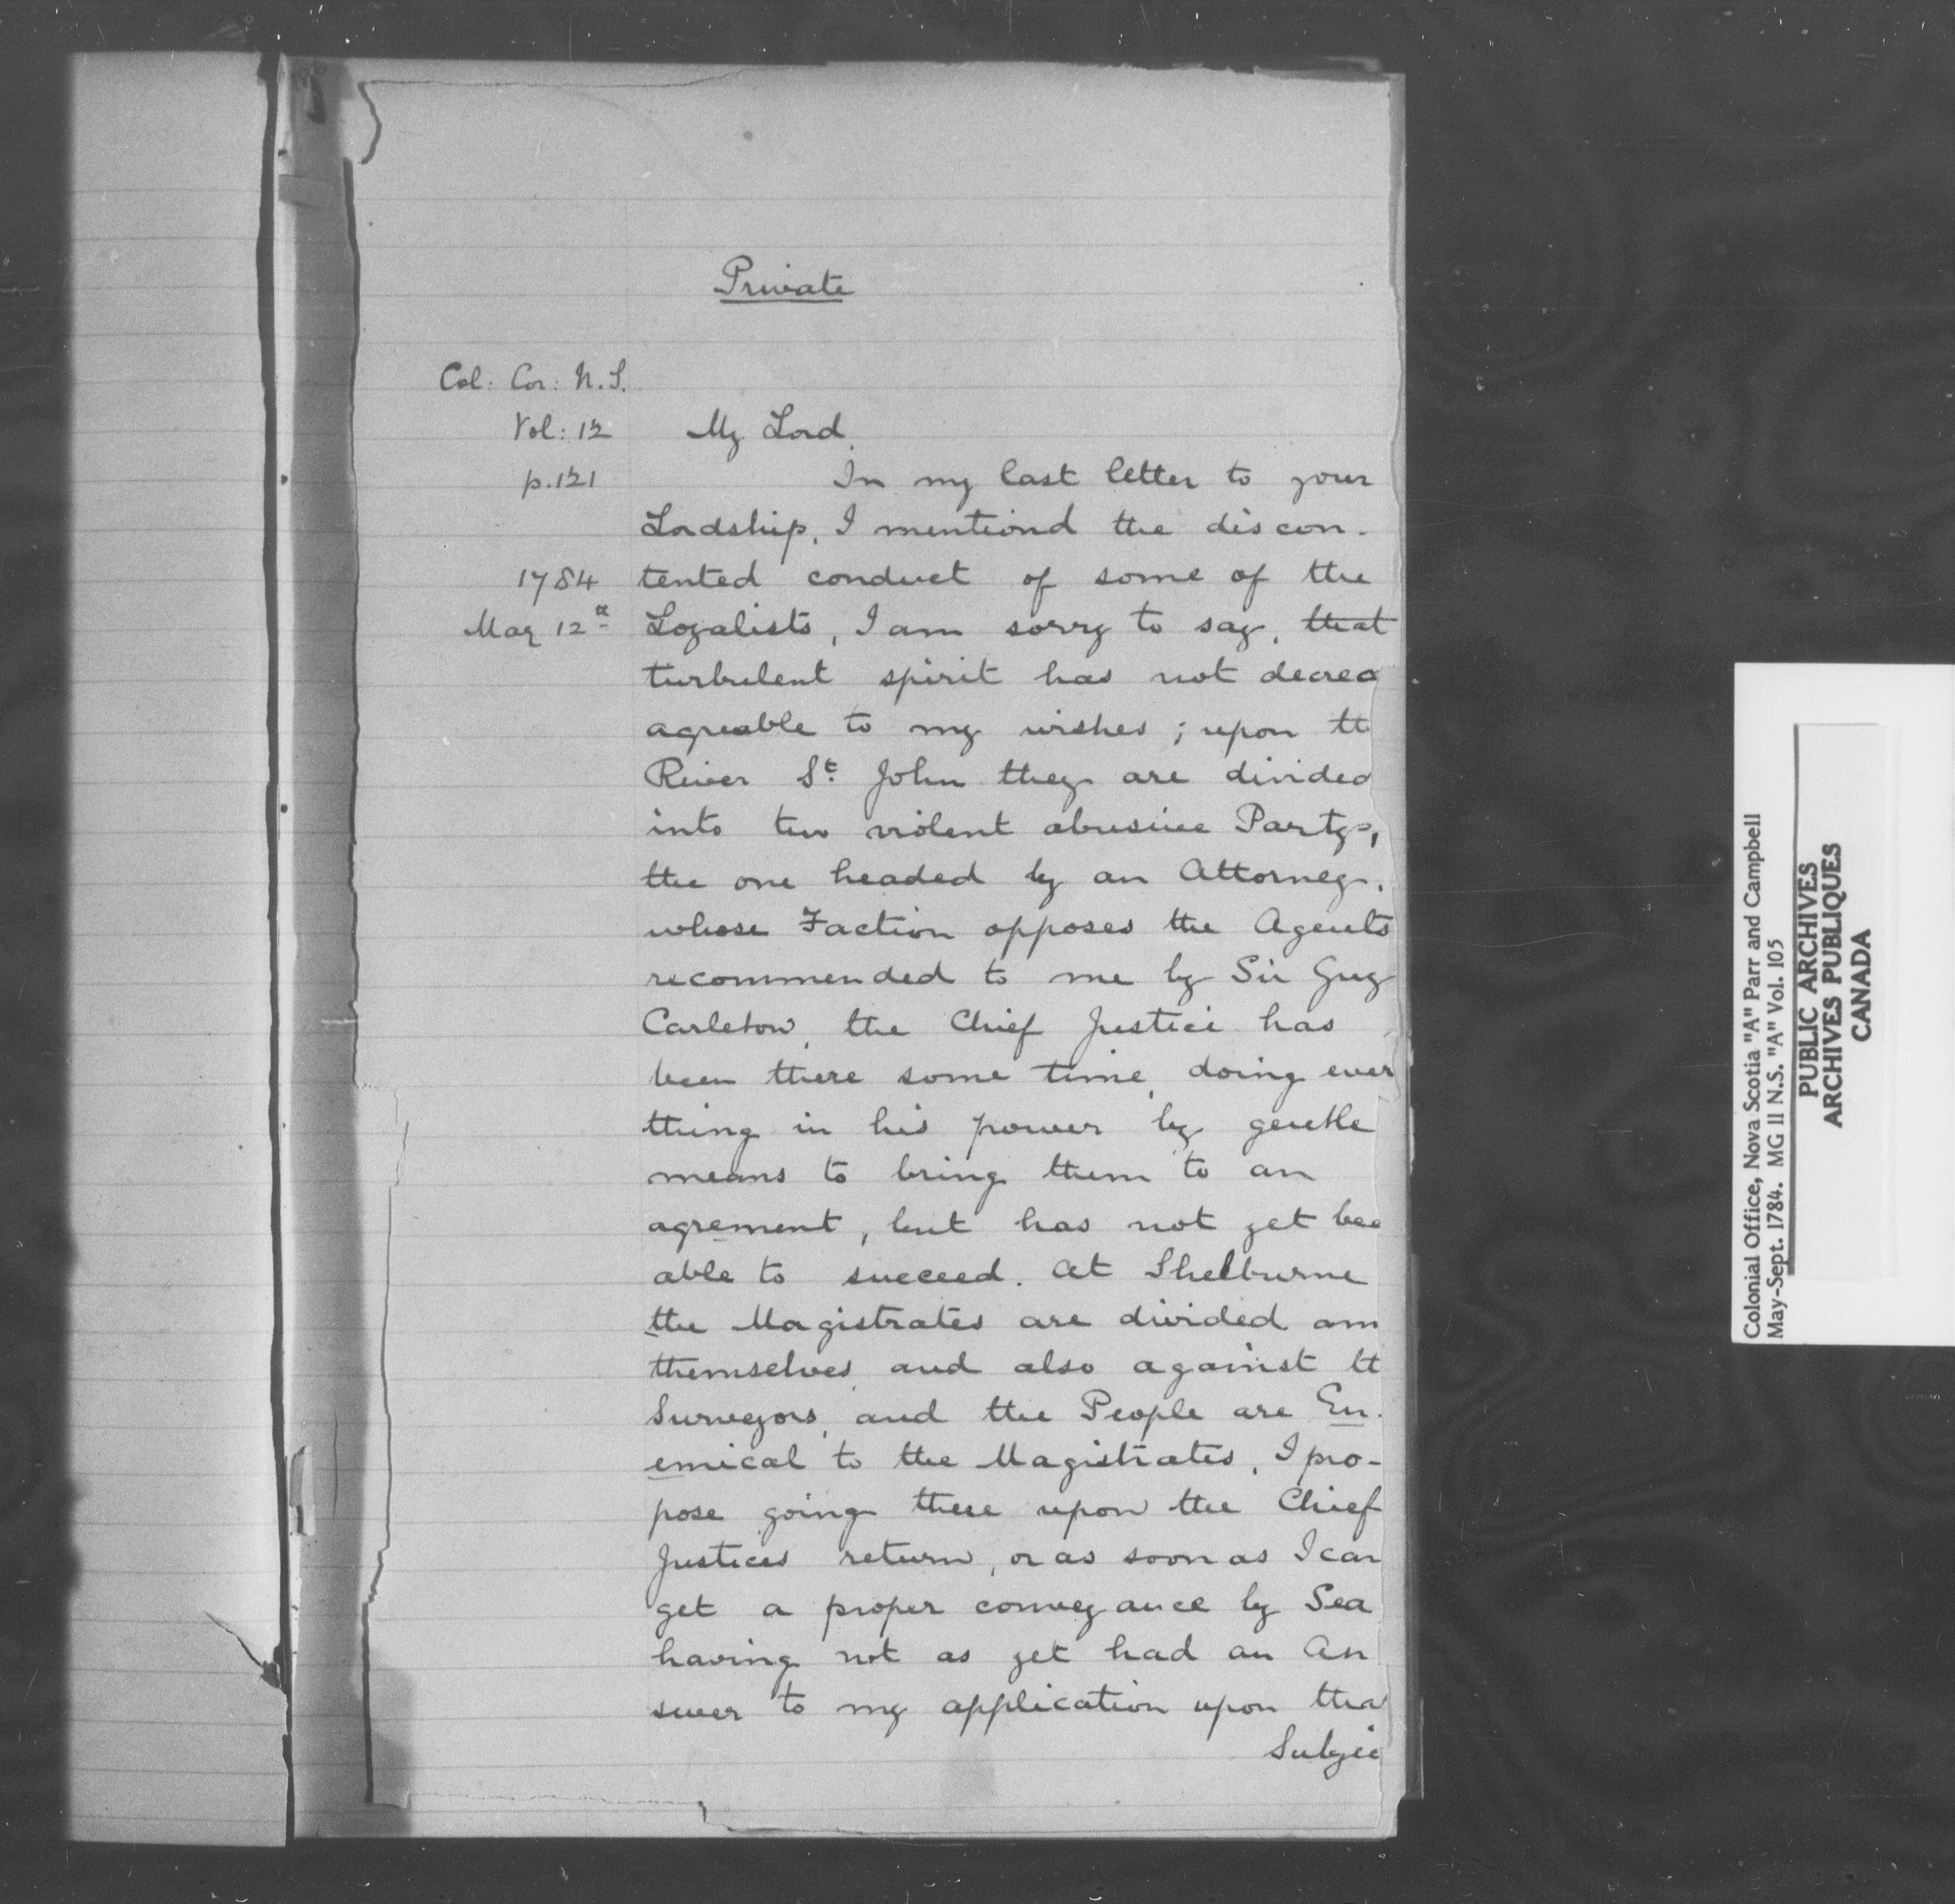 Private
Col: Cor: N.S.
Vol: 12
p.121
1784
May 12th
My Lord,
In my last letter to your
Lordship, I mentiond the discon-
tented conduct of some of the
Loyalists, I am sorry to say, that
turbulent spirit has not decrea
agreable to my wishes; upon th
River St. John they are divided
into two violent abusive Partys,
the one headed by an Attorney,
whose Faction opposes the Agents
recommended to me by Sir Guy
Carleton, the Chief Justice has
been there some time, doing ever
thing in his power by gentle
means to bring them to an
agrement, but has not yet bee
able to succeed. At Shelburne
the Magistrates are divided am
themselves, and also against th
Surveyors, and the People are En-
emical to the Magistrates, I pro-
pose going there upon the Chief
Justices return, or as soon as I can
get a proper conveyance by Sea
having not as yet had an An
swer to my application upon tha
Subjec
Colonial Office, Nova Scotia "A" Parr and Campbell
May-Sept. 1784. MG II N.S. "A" Vol. 105
PUBLIC ARCHIVES
ARCHIVES PUBLIQUES
CANADA